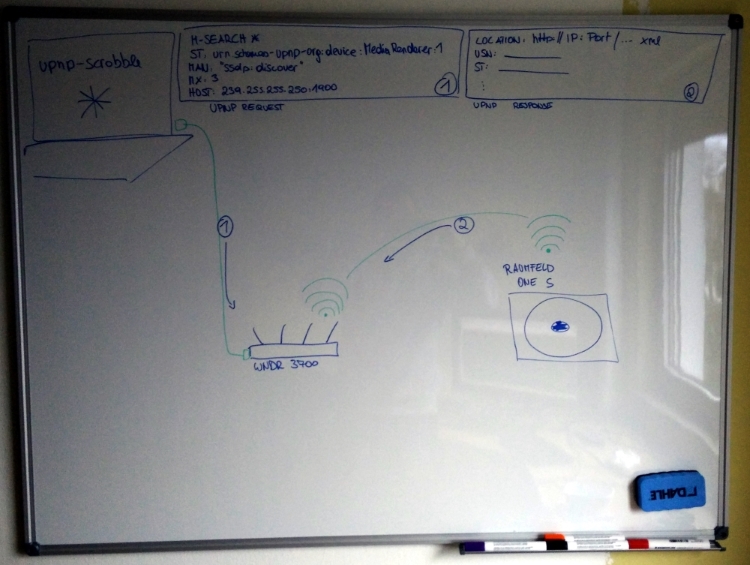 upnp-scrobble
M-SEARCH *
ST: urn:schemas-upnp-org:device:MediaRenderer:1
MAN: "ssdp:discover"
MX: 3
HOST: 239.255.255.250:1900
1
UPNP REQUEST
LOCATION: http://IP:Port/... xml
USN:
ST:
2
UPNP RESPONSE
1
2
RAUMFELD
ONE S
WNDR 3700
DAHLE